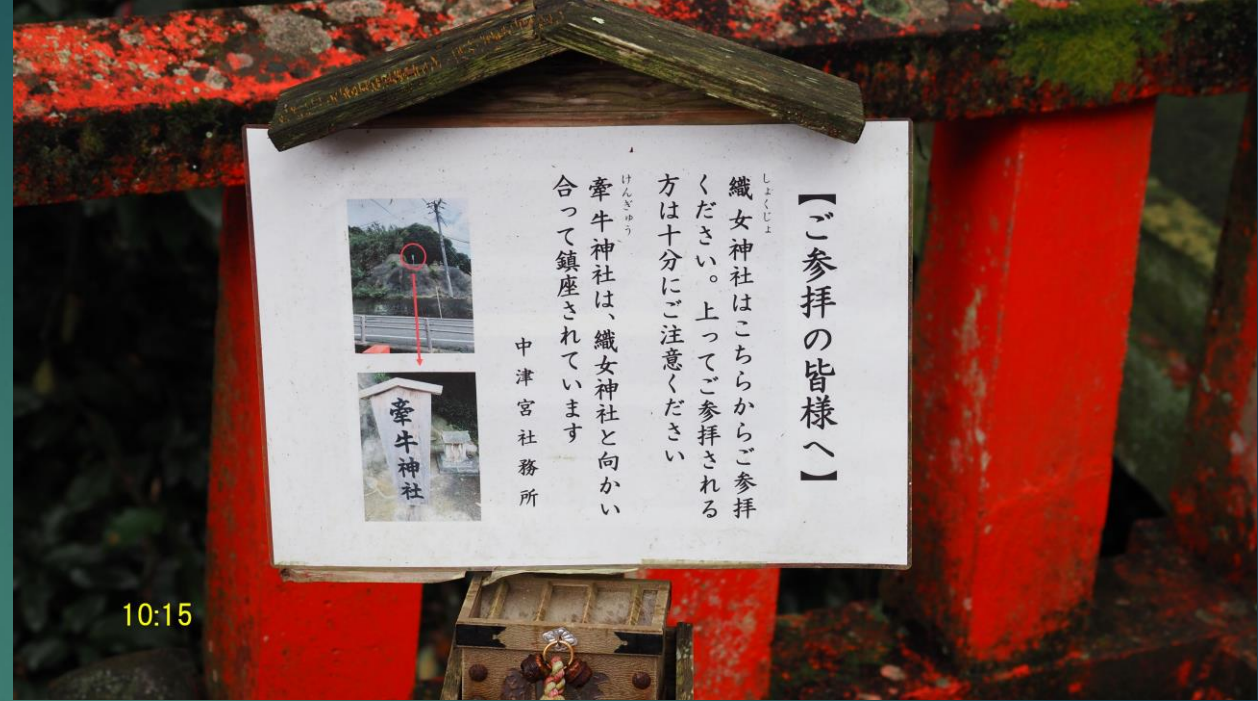 【ご参拝の皆様へ】
しょくじょ
織女神社はこちらからご参拝
ください。上ってご参拝される
方は十分にご注意ください
けんぎゅう
牽牛神社は、織女神社と向かい
合って鎮座されています
中津宮社務所
牽牛神社
10:15